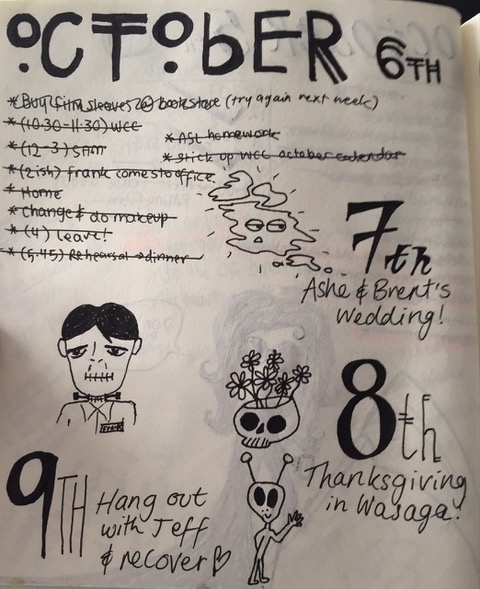 OCTOBER 6TH
* Buy film sleeves @ bookstore (try again next week)
* (10:30-11:30) WCC
* ASL homework
* (12-3) SAM
* stick up WCC october calendar
* (2ish) frank comes to office
* Home
* Change & do makeup
* (4) leave!
* (5:45) Rehearsal → dinner
7th
Ashe & Brent's
Wedding!
8th
Thanksgiving
in Wasaga!
9TH
Hang out
with Jeff
& recover ♡